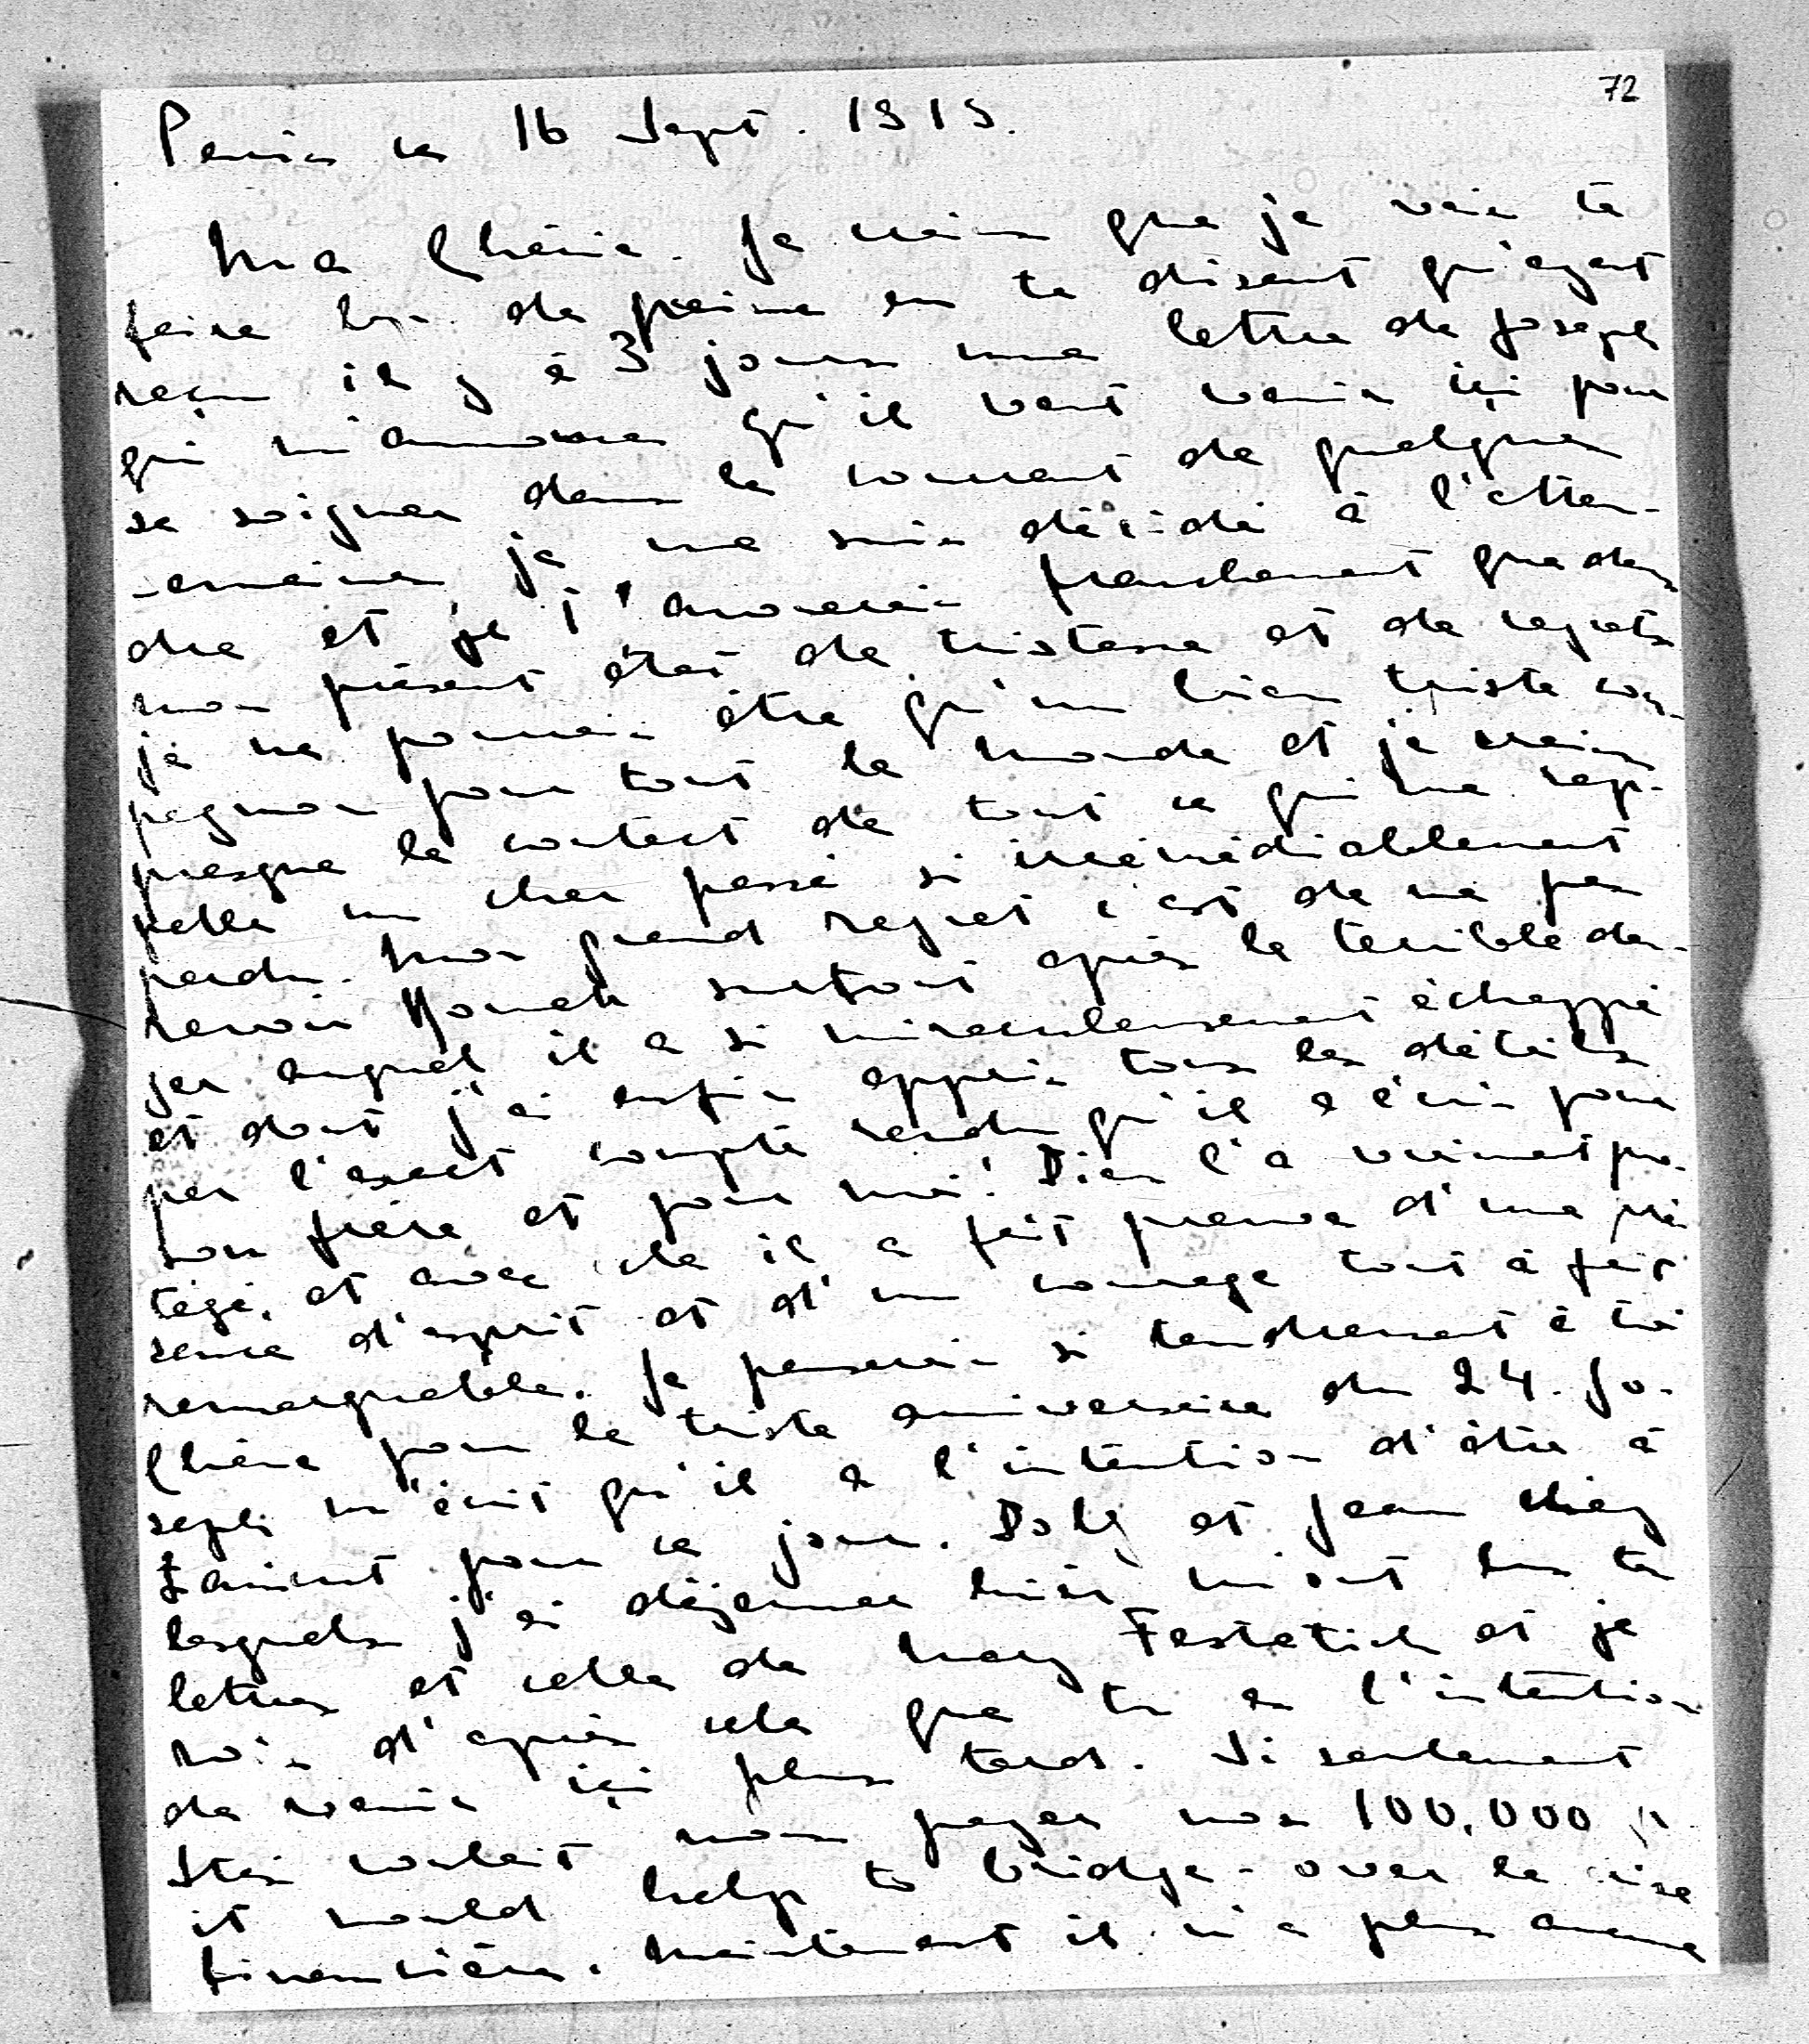 72
Paris ce 16 Sept. 1915.
Ma Chérie. Je crains que je vais te
faire bcp. de peine en te disant qu'ayant
reçu il y a 3 jours une lettre de Joseph
qui m'annonce qu'il veut venir içi pour
se soigner dans le courant de quelques
semaines je me suis décidé à l'atten-
dre et je t'avouerais franchement que dans
mon présent état de tristesse et de regrets
je ne pourrais être qu'un bien triste com-
pagnon pour tout le monde et je crains
presque le contact de tout ce qui me rap-
pelle un cher passé si irrémédiablement
perdu. Mon grand regret c'est de ne pas
revoir surtout après le terrible dan-
ger auquel il a si miraculeusement échappé
et dont j'ai enfin appris tous les détails
par l'exact compte rendu qu'il a écris pour
son frère et pour moi! Dieu l'a vraiment pro-
tégé, et avec cela il a fait preuve d'une pré
sence d'esprit et d'un courage tout à fait
remarquable. Je penserais si tendrement à toi
Chérie pour le triste anniversaire du 24. Jo-
seph m'écrit qu'il a l'intention d'être à
pour ce jour. Dolly et Jean chez
lesquels j'ai déjeuner hier m'ont lus ta
lettre et celle de Mary Festetich et je
vois d'après cela que tu as l'intention
de venir içi plus tard. Si seulement
voulait nous payer nos 100,000
it would help to bridge-over la crise
financière. Maintenant il n'a plus aucune